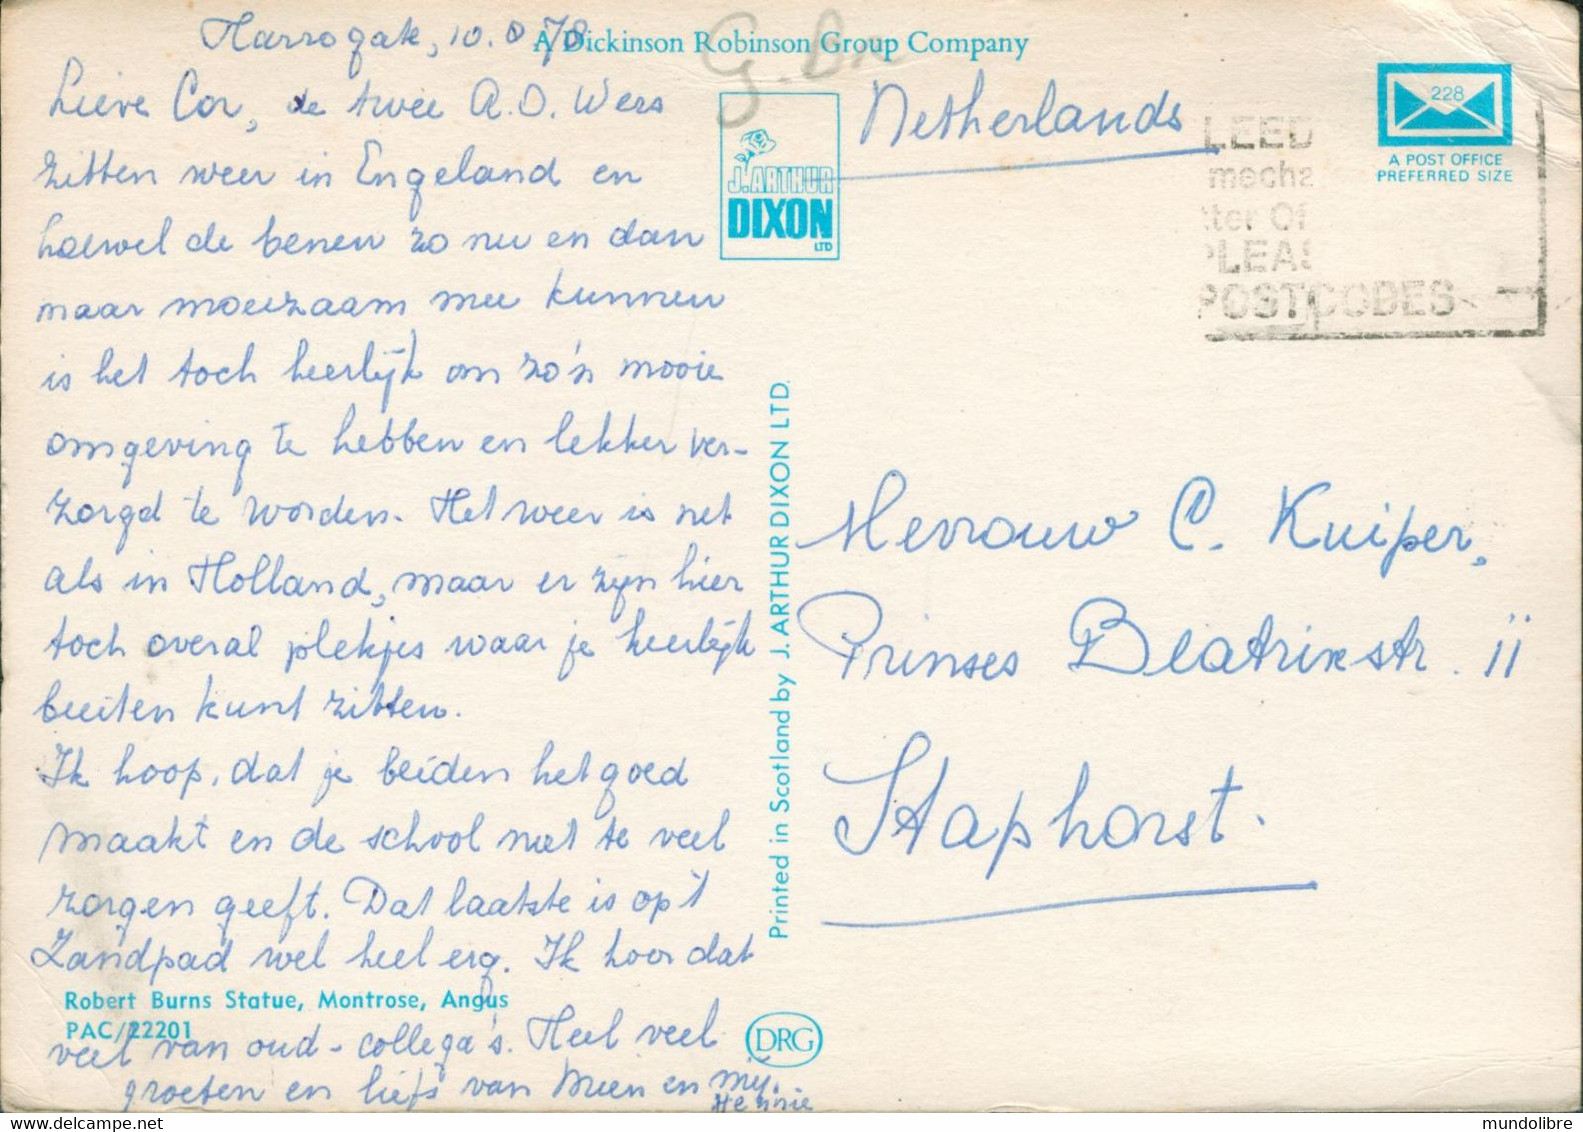 Harrogate, 10.8.78
Lieve Cor, de twee A.O. Wers
zitten weer in Engeland en
hoewel de benen zo nu en dan
maar moeizaam mee kunnen
is het toch heerlijk om zo'n mooie
omgeving te hebben en lekker ver-
zorgd te worden. Het weer is net
als in Holland, maar er zijn hier
toch overal plekjes waar je heerlijk
buiten kunt zitten.
Ik hoop, dat je beiden het goed
maakt en de school niet te veel
zorgen geeft. Dat laatste is op 't
Zandpad wel heel erg. Ik hoor dat
veel van oud-collega's. Heel veel
groeten en liefs van Mien en mij.
Hennie
A Dickinson Robinson Group Company
G. Bn
J. ARTHUR
DIXON
LTD
Printed in Scotland by J. ARTHUR DIXON LTD.
Robert Burns Statue, Montrose, Angus
PAC/22201
DRG
Netherlands
228
A POST OFFICE
PREFERRED SIZE
LEED
mecha
tter Of
PLEAS
POSTCODES
Mevrouw C. Kuiper,
Prinses Beatrixstr. 11
Staphorst.
mundolibre